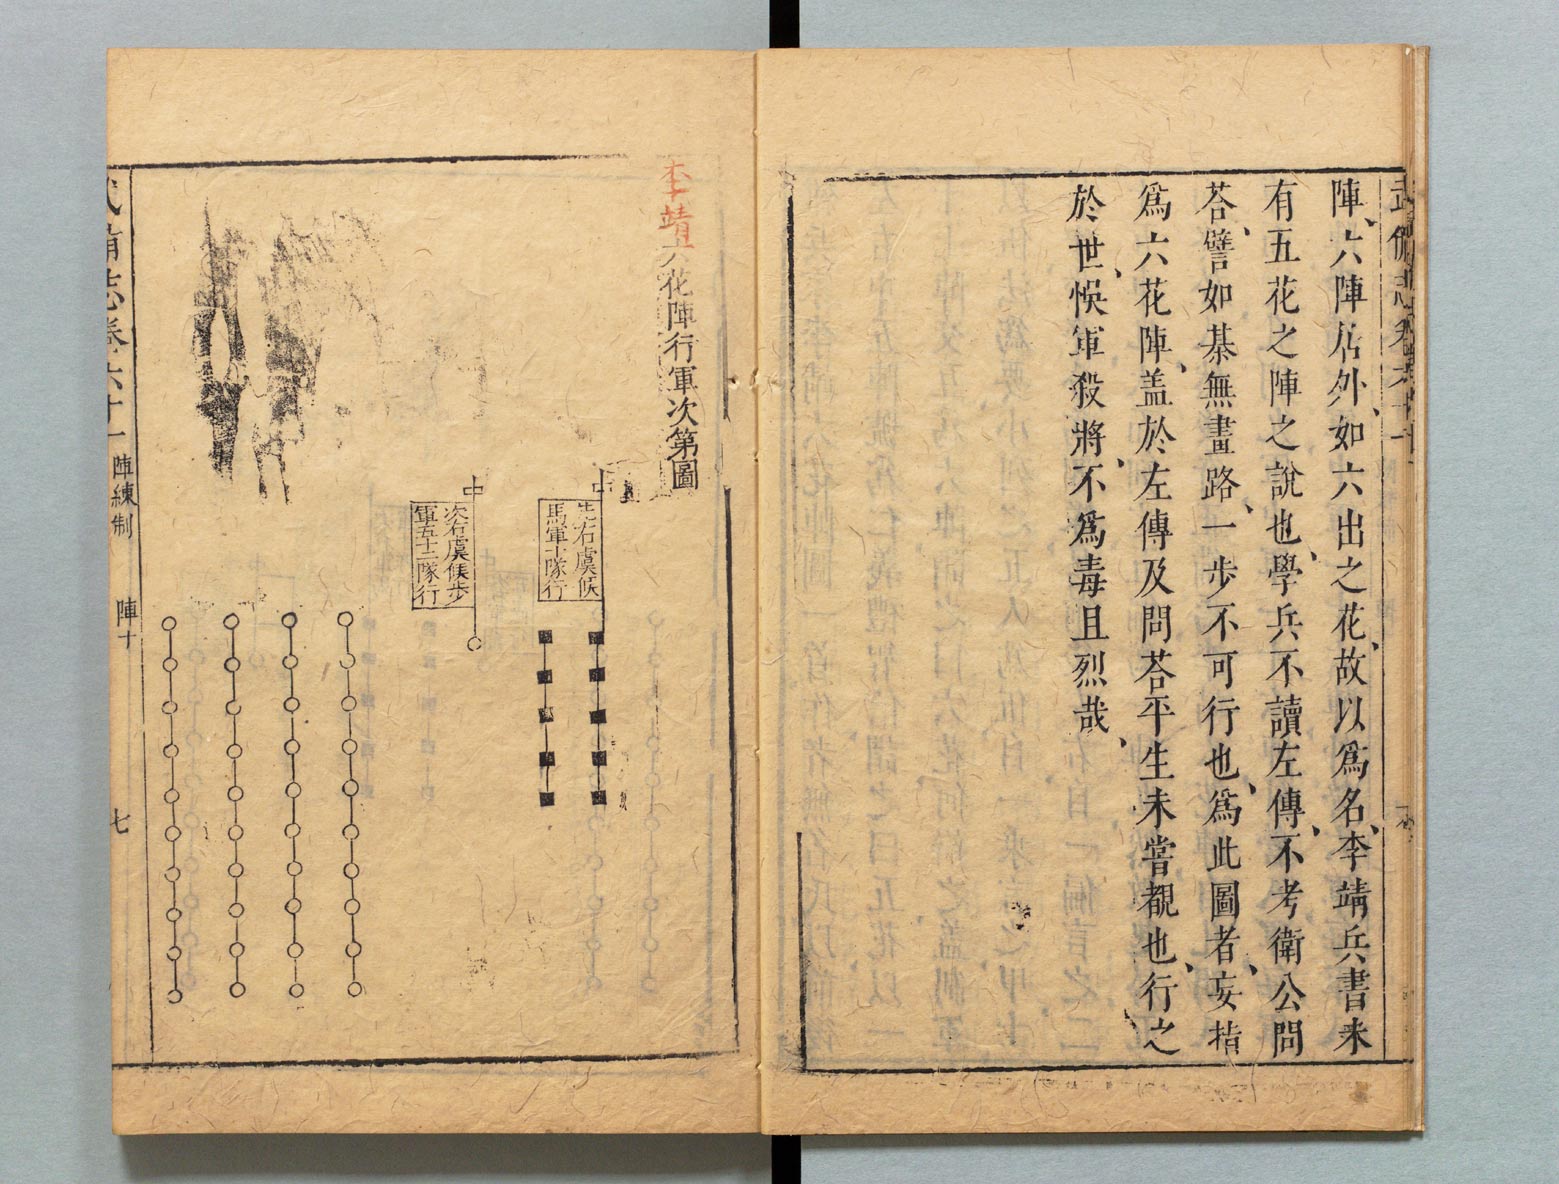 陣、六陣居外、如六出之花、故以為名、李靖兵書未
有五花之陣之說也、學兵不讀左傳、不考衛公問
荅、譬如棊無畫路、一步不可行也、為此圖者、妄指
為六花陣、盖於左傳及問荅平生未嘗覩也、行之
於世、悞軍殺將、不為毒且烈哉、
李靖六花陣行軍次第圖
先右虞候
馬軍十隊行
次右虞候步
軍五十二隊行
武備志卷六十一
陣練制
陣十
七